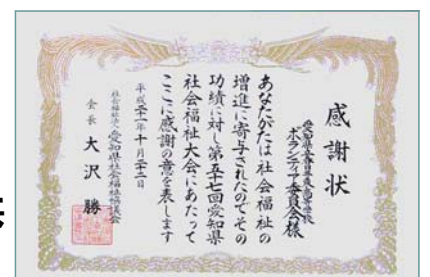 感謝状
ボランティア委員会様
あなたがたは社会福祉の
増進に寄与されたのでその
功績に対し第五十七回愛知県
社会福祉大会にあたって
ここに感謝の意を表します
平成二十一年十月二十二日
社会福祉法人愛知県社会福祉協議会
会長 大沢 勝